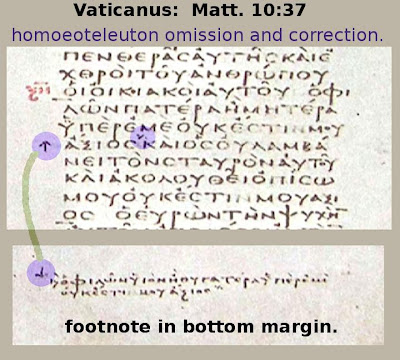 Vaticanus: Matt. 10:37
homoeoteleuton omission and correction.
ΠΕΝΘΕΡΑCΑΥΤΗCΚΑΙΕ
ΧΘΡΟΙΤΟΥΑΝΘΡΩΠΟΥ
ΟΙΟΙΚΙΑΚΟΙΑΥΤΟΥ ΟΦΙ
ΛΩΝΠΑΤΕΡΑΗΜΗΤΕΡΑ
ΥΠΕΡΕΜΕΟΥΚΕCΤΙΝΜΟΥ
ΑΞΙΟCΚΑΙΟCΟΥΛΑΜΒΑ
ΝΕΙΤΟΝCΤΑΥΡΟΝΑΥΤΟΥ
ΚΑΙΑΚΟΛΟΥΘΕΙΟΠΙCΩ
ΜΟΥΟΥΚΕCΤΙΝΜΟΥΑΞΙ
ΟC ΟΕΥΡΩΝΤΗΝΨΥΧΗ
ΟΥΚΕCΤΙΝΜΟΥΑΞΙΟC
footnote in bottom margin.